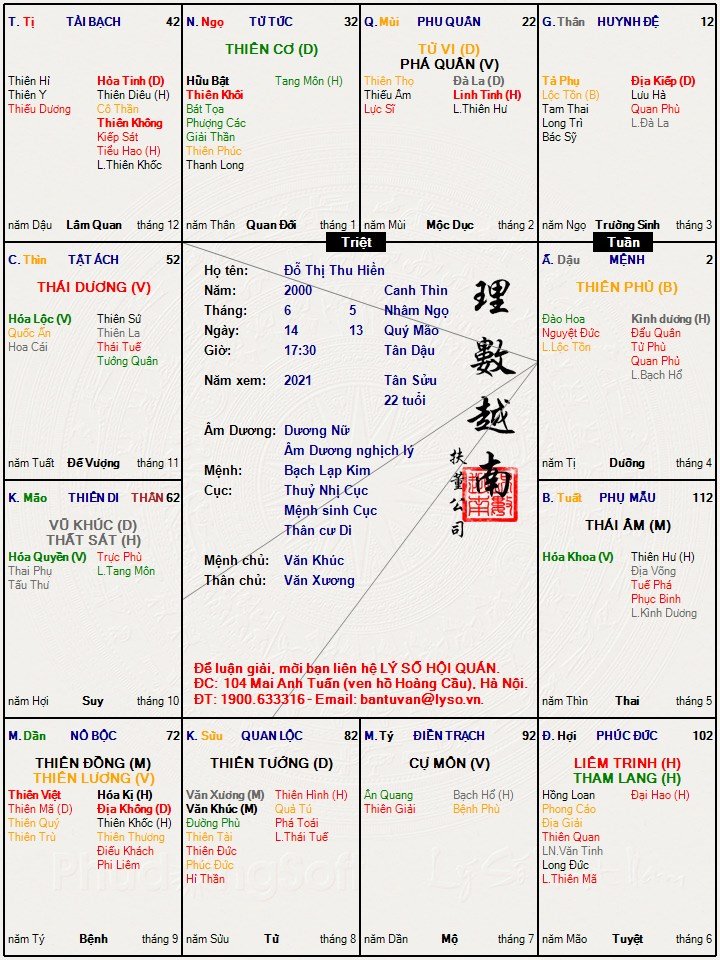 T. Tị TÀI BẠCH 42
Thiên Hỉ Hỏa Tinh (D)
Thiên Y Thiên Diêu (H)
Thiếu Dương Cô Thần
Thiên Không
Kiếp Sát
Tiểu Hao (H)
L.Thiên Khốc
năm Dậu Lâm Quan tháng 12
N. Ngọ TỬ TỨC 32
THIÊN CƠ (D)
Hữu Bật Tang Môn (H)
Thiên Khôi
Bát Tọa
Phượng Các
Giải Thần
Thiên Phúc
Thanh Long
năm Thân Quan Đới tháng 1
Q. Mùi PHU QUÂN 22
TỬ VI (D)
PHÁ QUÂN (V)
Thiên Thọ Đà La (D)
Thiếu Âm Linh Tinh (H)
Lực Sĩ L.Thiên Hư
năm Mùi Mộc Dục tháng 2
G. Thân HUYNH ĐỆ 12
Tả Phụ Địa Kiếp (D)
Lộc Tồn (B) Lưu Hà
Tam Thai Quan Phủ
Long Trì L.Đà La
Bác Sỹ
năm Ngọ Trường Sinh tháng 3
Triệt
Tuần
C. Thìn TẬT ÁCH 52
THÁI DƯƠNG (V)
Hóa Lộc (V) Thiên Sứ
Quốc Ấn Thiên La
Hoa Cái Thái Tuế
Tướng Quân
năm Tuất Đế Vượng tháng 11
Họ tên: Đỗ Thị Thu Hiền
Năm: 2000 Canh Thìn
Tháng: 6 5 Nhâm Ngọ
Ngày: 14 13 Quý Mão
Giờ: 17:30 Tân Dậu
Năm xem: 2021 Tân Sửu
22 tuổi
Âm Dương: Dương Nữ
Âm Dương nghịch lý
Mệnh: Bạch Lạp Kim
Cục: Thuỷ Nhị Cục
Mệnh sinh Cục
Thân cư Di
Mệnh chủ: Văn Khúc
Thân chủ: Văn Xương
Để luận giải, mời bạn liên hệ LÝ SỐ HỘI QUÁN.
ĐC: 104 Mai Anh Tuấn (ven hồ Hoàng Cầu), Hà Nội.
ĐT: 1900.633316 - Email: bantuvan@lyso.vn.
理數越南
扶董公司
Ấ. Dậu MỆNH 2
THIÊN PHỦ (B)
Đào Hoa Kình dương (H)
Nguyệt Đức Đẩu Quân
L.Lộc Tồn Tử Phù
Quan Phủ
L.Bạch Hổ
năm Tị Dưỡng tháng 4
K. Mão THIÊN DI THÂN 62
VŨ KHÚC (D)
THẤT SÁT (H)
Hóa Quyền (V) Trực Phù
Thai Phụ L.Tang Môn
Tấu Thư
năm Hợi Suy tháng 10
B. Tuất PHỤ MẪU 112
THÁI ÂM (M)
Hóa Khoa (V) Thiên Hư (H)
Địa Võng
Tuế Phá
Phục Binh
L.Kình Dương
năm Thìn Thai tháng 5
M. Dần NÔ BỘC 72
THIÊN ĐỒNG (M)
THIÊN LƯƠNG (V)
Thiên Việt Hóa Kị (H)
Thiên Mã (D) Địa Không (D)
Thiên Quý Thiên Khốc (H)
Thiên Trù Thiên Thương
Điếu Khách
Phi Liêm
năm Tý Bệnh tháng 9
K. Sửu QUAN LỘC 82
THIÊN TƯỚNG (D)
Văn Xương (M) Thiên Hình (H)
Văn Khúc (M) Quả Tú
Đường Phù Phá Toái
Thiên Tài L.Thái Tuế
Thiên Đức
Phúc Đức
Hỉ Thần
năm Sửu Tử tháng 8
M. Tý ĐIỀN TRẠCH 92
CỰ MÔN (V)
Ân Quang Bạch Hổ (H)
Thiên Giải Bệnh Phù
năm Dần Mộ tháng 7
Đ. Hợi PHÚC ĐỨC 102
LIÊM TRINH (H)
THAM LANG (H)
Hồng Loan Đại Hao (H)
Phong Cáo
Địa Giải
Thiên Quan
LN.Văn Tinh
Long Đức
L.Thiên Mã
năm Mão Tuyệt tháng 6